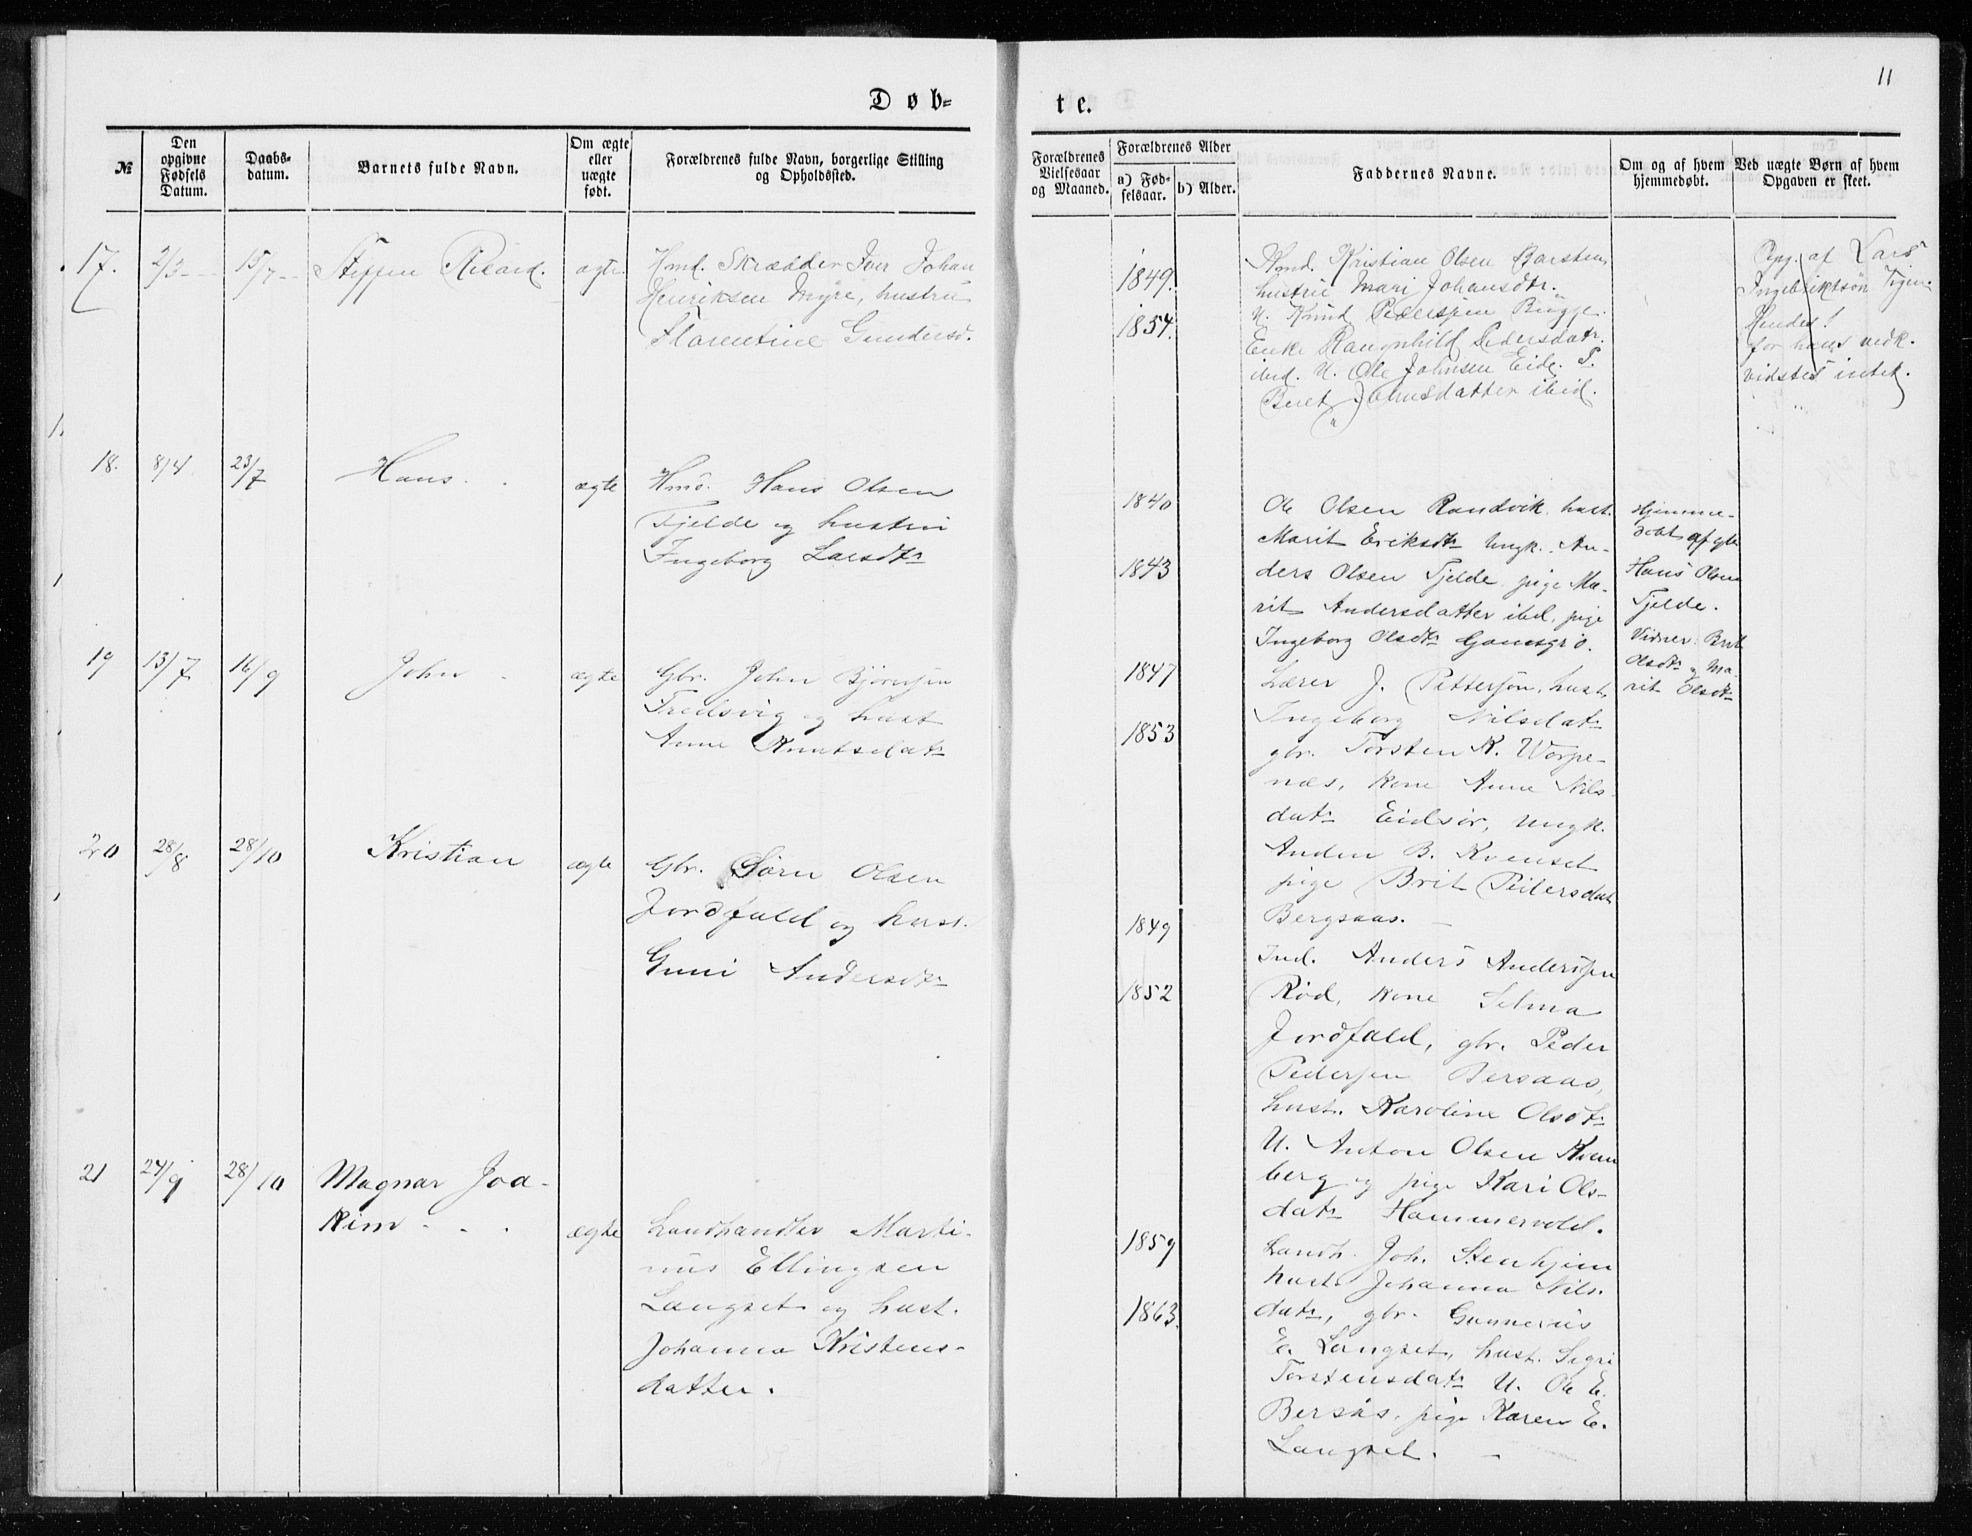 11
Døb-
te.
№
Den opgivne Fødsels Datum.
Daabs-datum.
Barnets fulde Navn.
Om ægte eller uægte født.
Forældrenes fulde Navn, borgerlige Stilling og Opholdssted.
Forældrenes Vielsesaar og Maaned.
Forældrenes Alder
a) Fød-selsaar.
b) Alder.
Faddernes Navne.
Om og af hvem hjemmedøbt.
Ved uægte Børn af hvem Opgaven er skeet.
17.
2/3
15/7
Steffen Rikard.
ægte
Hmd. Skrædder Iver Johan
Henriksen Myre, hustru
Florentine Gundersd.
1849.
1854.
Hmd. Kristian Olsen Barsten,
hustru Mari Johansdtr.
U. Knud Pederssen Bugge.
Enke Rangnhild Pedersdatr.
ibid. U. Ole Johnsen Eide. P.
Beret Johnsdatter ibid.
Opg. af Lars
Ingebriktsøn
Hendes!
for hans vedk.
vidstes intet.
18.
8/4
23/7
Hans.
ægte
Hmd. Hans Olsen
Fjelde og hustru
Ingeborg Larsdtr
1840
1843
Ole Olsen Randvik, hust.
Marit Eriksdtr Ungk. An-
ders Olsen Fjelde, pige Ma-
rit Andersdatter ibd, pige
Ingeborg Olsdtr
Hjemme-
døbt af
Hans Olsen
Fjelde.
Vidner: Brit
Olsdtr og Ma-
rit Olsdtr
19
13/7
16/9
John
ægte
Gbr. John Bjørnsen
Tredsvig og hust
Anne Knutsdatr
1847
1853
Lærer J. Petterson, hust.
Ingeborg Nilsdatr
gbr. Torsten K. Worpe-
næs, kone Anne Nils-
datr Eidsør, Ungk.
Anden B. Kvenset
pige Brit Pedersdat
Bergsaas.
20
28/8
28/10
Kristian
ægte
Gbr. Sørn Olsen
Jordfald og hust.
Guni Andersdtr
1849
1852
Ind. Anders Anderssen
Rød, kone Selma
Jordfald, gbr. Peder
Pedersen Bersaas,
hust. Karoline Olsdtr
U. Anton Olsen Kvern
berg og pige Kari Ols-
datr Hammervold.
21
24/9
28/10
Magnar Joa-
kim
ægte
Landhandler Marti-
nus Ellingsen
Langset og hust.
Johanna Kristens-
datter.
1859
1863.
Landh. Joh. Stenhjem
hust. Johanna Nils-
datr, gbr. Gunnerius
E. Langset, hust. Sigri
Torstensdatr U. Ole E.
Bersås, pige Karen E.
Langset.